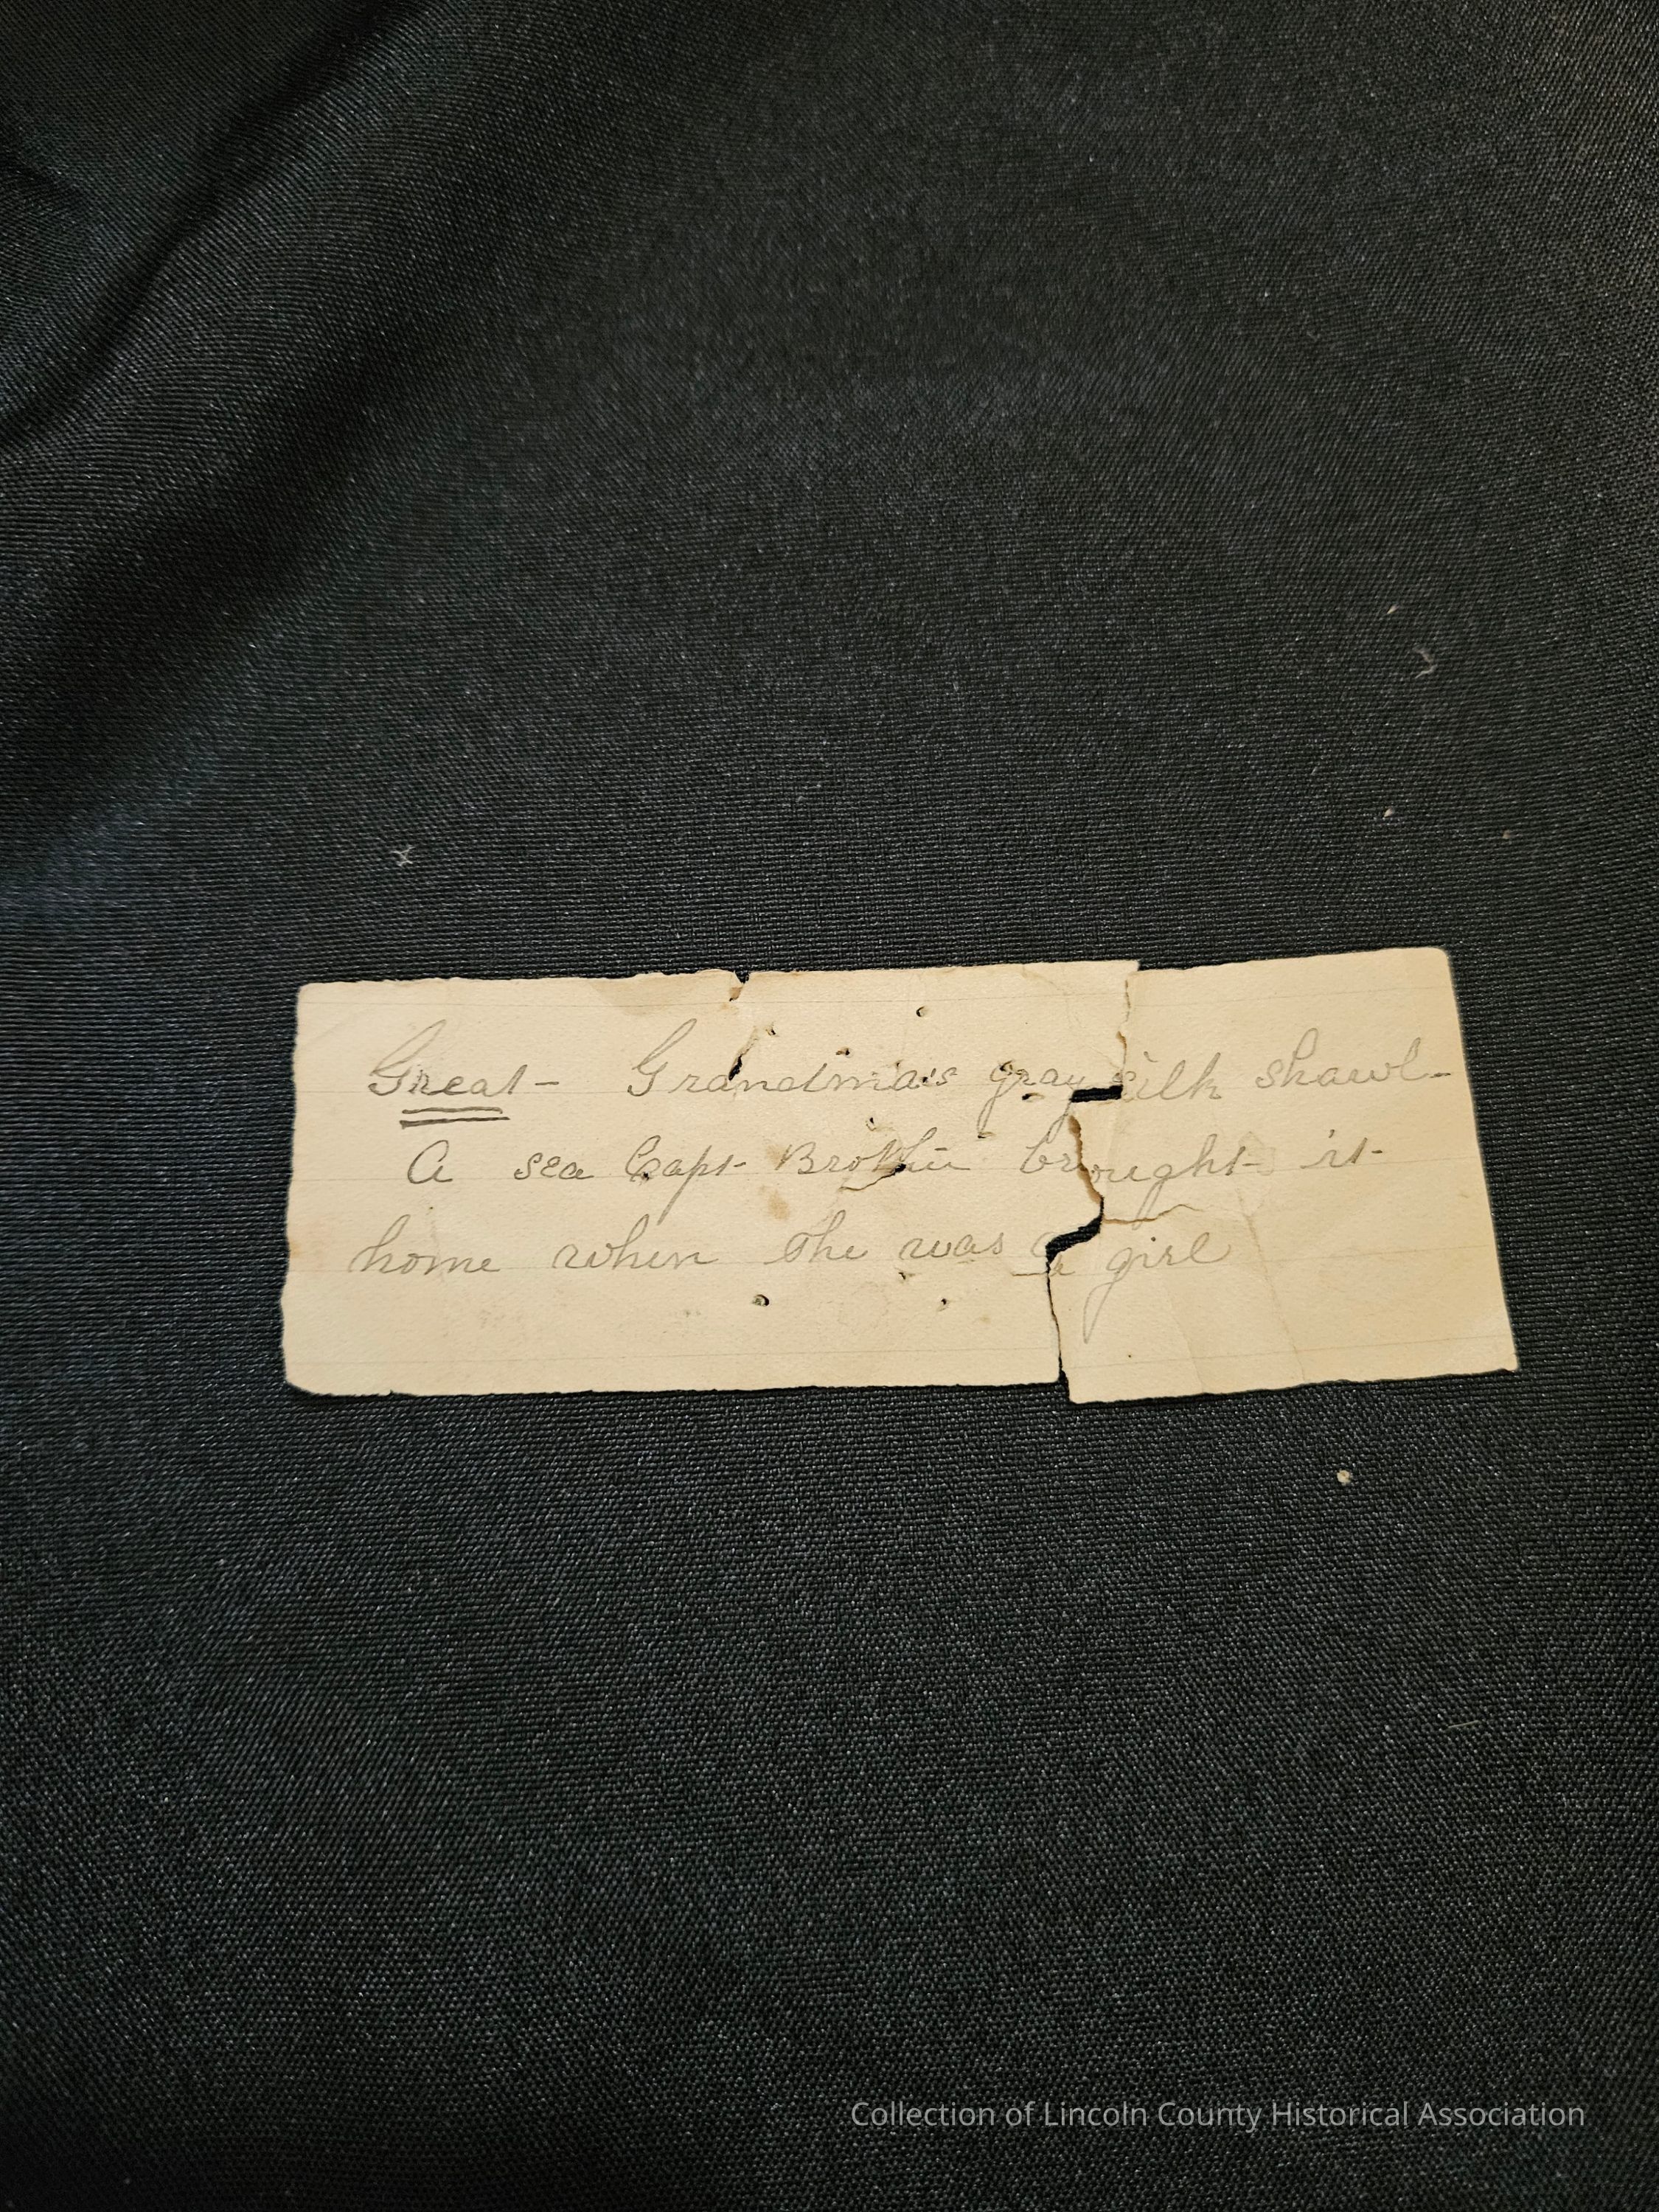 Great- Grandma's gray silk shawl-
A sea Capt- Brother brought it-
home when she was a girl
Collection of Lincoln County Historical Association